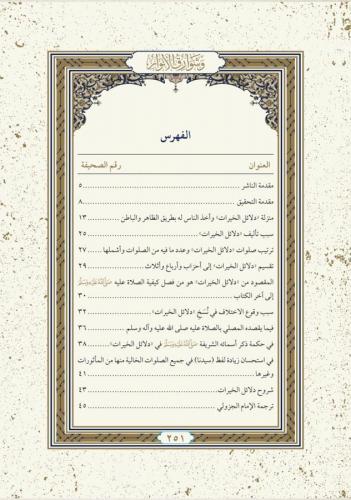 وشوارق الأنوار
الفهرس
العنوان رقم الصحيفة
مقدمة الناشر ٥
مقدمة التحقيق ٨
منزلة «دلائل الخيرات» وأخذ الناس له بطريق الظاهر والباطن ١٣
سبب تأليف «دلائل الخيرات» ٢٥
ترتيب صلوات «دلائل الخيرات» وعدد ما فيه من الصلوات وأشملها ٢٧
تقسيم «دلائل الخيرات» إلى أحزاب وأرباع وأثلاث ٢٩
المقصود من «دلائل الخيرات» هو من فصل كيفية الصلاة عليه ﷺ
إلى آخر الكتاب ٣٠
سبب وقوع الاختلاف في نُسَخ «دلائل الخيرات» ٣٢
فيما يقصده المصلي بالصلاة عليه صلى الله عليه وآله وسلم ٣٦
في حكمة ذكر أسمائه الشريفة ﷺ في «دلائل الخيرات» ٣٨
في استحسان زيادة لفظ (سيدنا) في جميع الصلوات الخالية منها من المأثورات
وغيرها ٤١
شروح دلائل الخيرات ٤٣
ترجمة الإمام الجزولي ٤٥
٢٥١